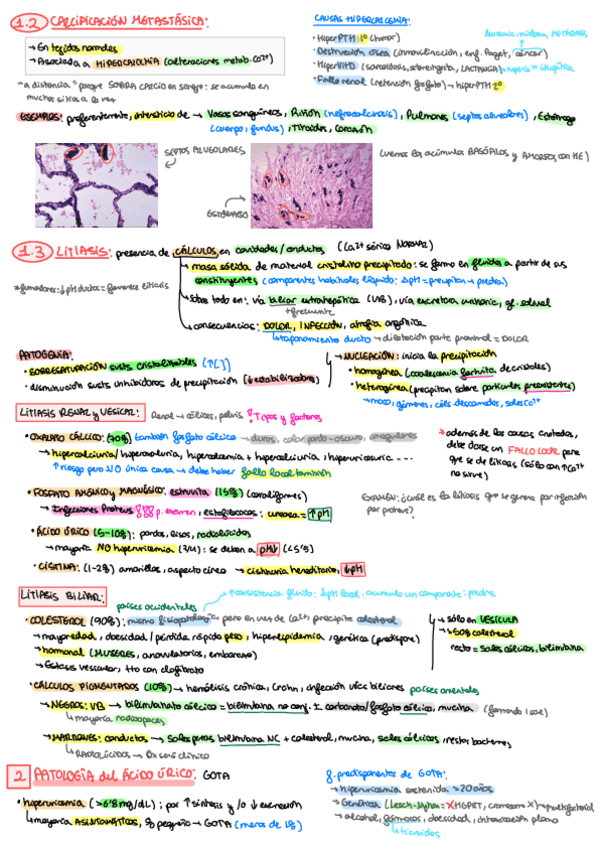 1.2 CALCIFICACIÓN METASTÁSICA:
→ En tejidos normales
→ Asociada a HIPERCALCEMIA (alteraciones metab. Ca²⁺)
"a distancia" porque SOBRA CALCIO en sangre: se acumula en
muchos sitios a la vez
CAUSAS HIPERCALCEMIA:
· HiperPTH 1º (tumor)
leucemia, mieloma, METÁSTASIS
· Destrucción ósea (inmovilización, enf. Paget, cáncer)
· HiperVITD (sarcoidosis, sobreingesta, LACTANCIA)
· Fallo renal (retención fosfato) → hiperPTH 2º
EJEMPLOS: preferentemente, intersticio de → Vasos sanguíneos, Riñón (nefrocalcinosis), Pulmones (septos alveolares), Estómago
(cuerpo, fundus), Tiroides, corazón
SEPTOS ALVEOLARES
ESTÓMAGO
(vemos los acúmulos BASÓFILOS y AMORFOS con HE)
1.3 LITIASIS: presencia de CÁLCULOS en cavidades/conductos (Ca²⁺ sérico NORMAL)
→ masa sólida de material cristalino precipitado: se forma en fluidos a partir de sus
constituyentes (componente habituales líquido: ΔpH = precipitan → piedra)
*fumadores: ↓pH ductos = favorece litiasis
→ sobre todo en: vía biliar extrahepática (VB), vía excretora urinaria, gl. salival
+ frecuente
→ consecuencias: DOLOR, INFECCIÓN, atrofia orgánica
↳ taponamiento ducto → dilatación parte proximal = DOLOR
PATOGENIA:
· SOBRESATURACIÓN susts cristalizables (↑[ ])
· disminución susts inhibidoras de precipitación (↓estabilizadores)
→ NUCLEACIÓN: inicia la precipitación
· homogénea (coalescencia fortuita de cristales)
· heterogénea (precipitan sobre partículas preexistentes)
→ moco, gérmenes, céls descamadas, sales Ca²⁺
LITIASIS RENAL y VESICAL: Renal → cálices, pelvis ‼ Tipos y factores
· OXALATO CÁLCICO: (70%) también fosfato cálcico → duros, color pardo-oscuro, irregulares
→ hipercalciuria/hiperoxaluria, hipercalcemia + hipercalciuria, hiperuricosuria...
↑ riesgo pero NO única causa → debe haber fallo local también
* además de las causas anotadas,
debe darse un FALLO LOCAL para
que se dé litiasis (sólo con ↑Ca²⁺
no sirve)
· FOSFATO AMÓNICO y MAGNÉSICO: estruvita (15%) (coraliformes)
→ Infecciones Proteus p. examen, estafilococos: ureasa = ↑pH
EXAMEN: ¿cuál es la litiasis que se genera por infección
por proteus?
· ÁCIDO ÚRICO (5-10%): pardos, lisos, radiolúcidos
→ mayoría NO hiperuricemia (3/4): se deben a pH↓ (<5'5)
· CISTINA: (1-2%) amarillos, aspecto céreo → cistinuria hereditaria, ↓pH
LITIASIS BILIAR:
países occidentales
· COLESTEROL (90%): misma fisiopatología pero en vez de Ca²⁺, precipita colesterol
→ mayor edad, obesidad/pérdida rápida peso, hiperlipidemia, genética (predispone)
→ hormonal (MUJERES, anovulatorios, embarazo)
→ Éstasis vesicular, tto con clofibrato
→ sólo en VESÍCULA
→ >50% colesterol
resto = sales cálcicas, bilirrubina
· CÁLCULOS PIGMENTADOS (10%) → hemólisis crónica, Crohn, infección vías biliares países orientales
→ NEGROS: VB → bilirrubinato cálcico = bilirrubina no conj. ± carbonato/fosfato cálcico, mucina
↳ mayoría radioopacos
→ MARRONES: conductos → Sales puras bilirrubina NC + colesterol, mucina, sales cálcicas, restos bacterianos
↳ RADIOLÚCIDOS → Dx será clínico
2 PATOLOGÍA del ÁCIDO ÚRICO: GOTA
· hiperuricemia (>6'8 mg/dL): por ↑síntesis y/o ↓excreción
↳ mayoría ASINTOMÁTICOS, % pequeño → GOTA
f. predisponentes de GOTA:
→ hiperuricemia sostenida >20 años
→ Genética (Lesch-Nyhan = X HGPRT, cromosoma X) → multifactorial
→ alcohol, fármacos, obesidad, intoxicación plomo
↳ tiazidas